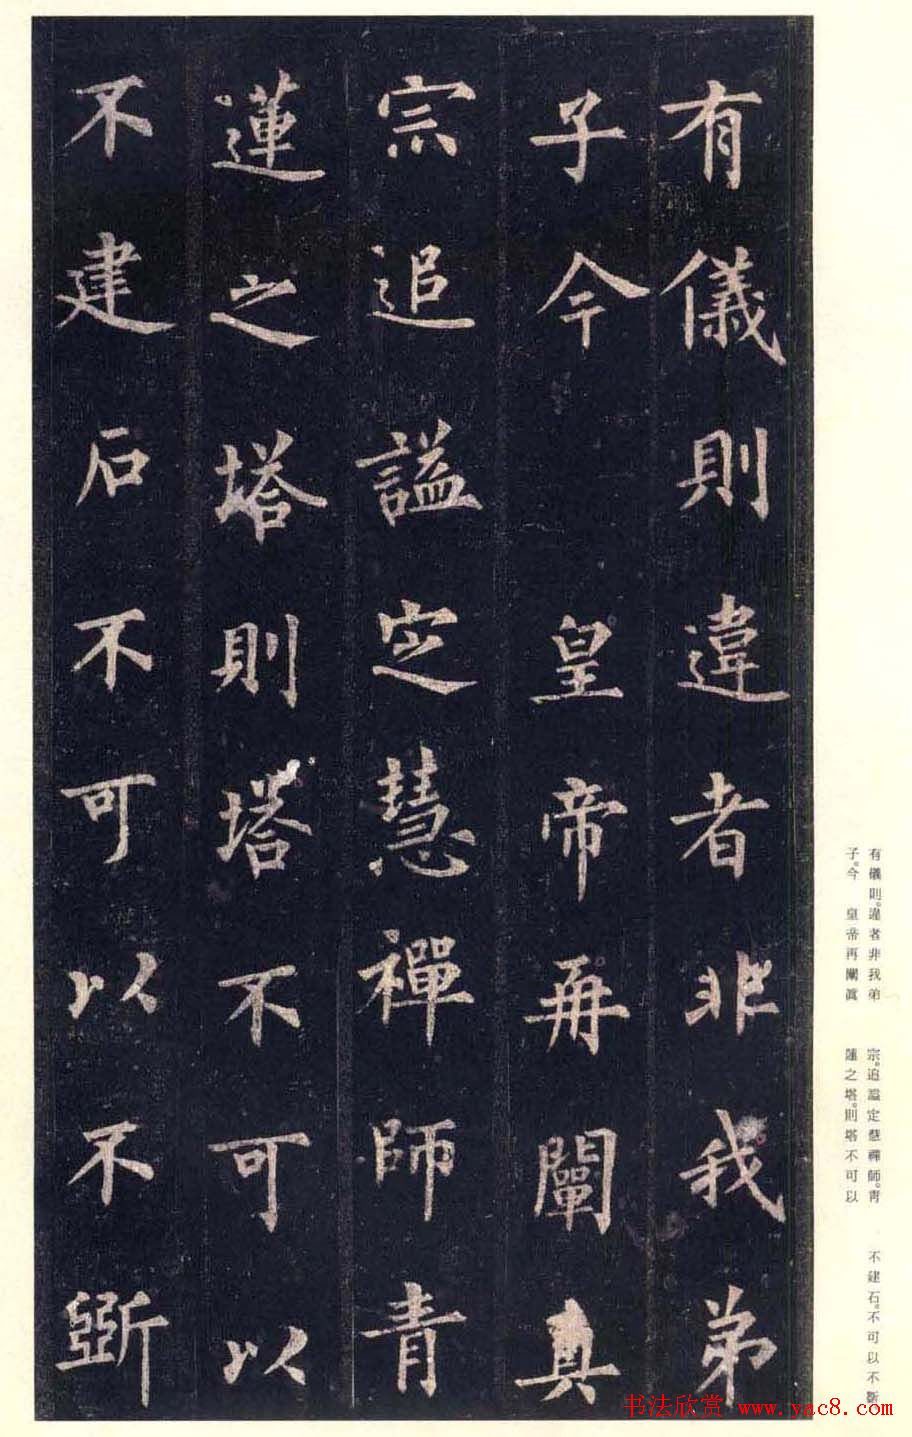 有儀則違者非我弟
子今　皇帝再闡真
宗追謚定慧禪師青
蓮之塔則塔不可以
不建石不可以不斲
有儀則。違者非我弟
子。今　皇帝再闡眞
宗。追謚定慧禪師。靑
蓮之塔。則塔不可以
不建石。不可以不斲
书法欣赏 www.yac8.com